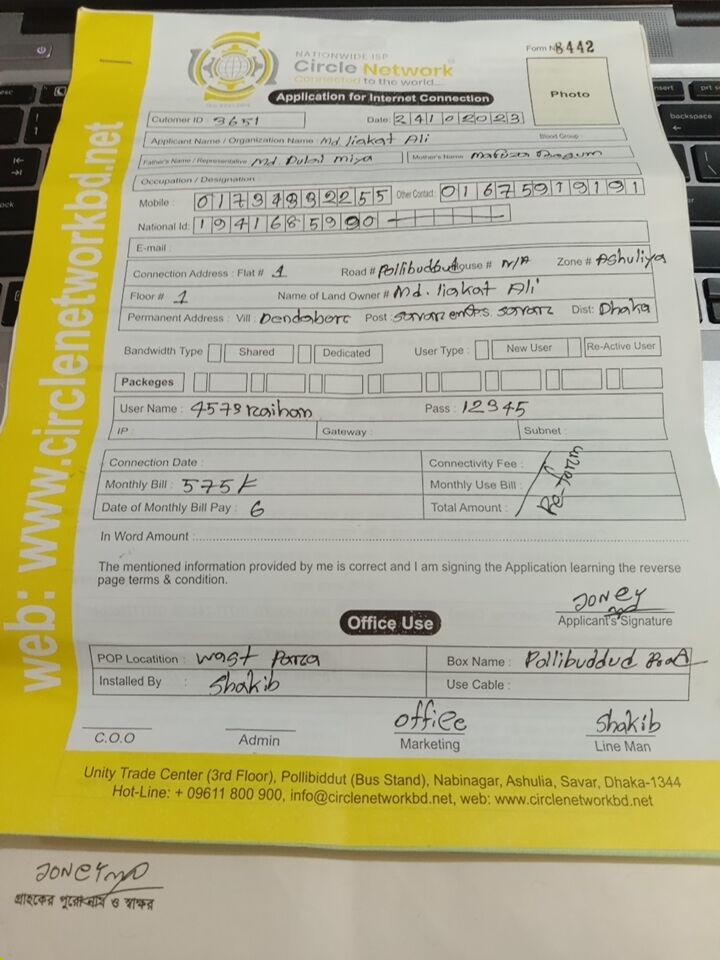 NATIONWIDE ISP
Circle Network
Connected to the world...
Form N 8442
Application for Internet Connection
Photo
Cutomer ID 3651 Date: 24102023
Applicant Name / Organization Name : Md liakat Ali Blood Group
Father's Name / Representative Md Dulal miya Mother's Name
Occupation / Designation :
Mobile : Other Contact : 01675919191
National Id: 1941685990
E-mail :
Connection Address : Flat # 1 Road # Pollibuddut House # N/A Zone # Ashuliya
Floor # 1 Name of Land Owner # Md. liakat Ali
Permanent Address : Vill : Dendabor Post : Dist: Dhaka
Bandwidth Type Shared Dedicated User Type : New User Re-Active User
Packeges
User Name : 4579raihan Pass : 12345
IP : Gateway : Subnet :
Connection Date : Connectivity Fee :
Monthly Bill : 575 Monthly Use Bill :
Date of Monthly Bill Pay : 6 Total Amount :
Re-form
In Word Amount :
The mentioned information provided by me is correct and I am signing the Application learning the reverse
page terms & condition.
JONEY
Applicant's Signature
Office Use
POP Locatition : West Para Box Name : Pollibuddud Road
Installed By : Shakib Use Cable :
office Shakib
C.O.O Admin Marketing Line Man
Unity Trade Center (3rd Floor), Pollibiddut (Bus Stand), Nabinagar, Ashulia, Savar, Dhaka-1344
Hot-Line: + 09611 800 900, info@circlenetworkbd.net, web: www.circlenetworkbd.net
web: www.circlenetworkbd.net
JONEY
গ্রাহকের পুরো নাম ও স্বাক্ষর